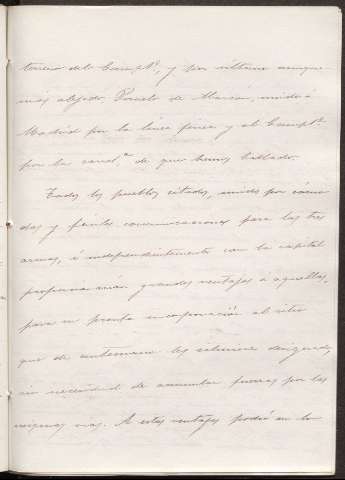 tercero del Campto, y por ultimo aunque
más alejado Pozuelo de Alarcón, unido á
Madrid por la linea férrea y al Campto
por la carra de que hemos hablado.
Todos los pueblos citados, unidos por cómo
das y fáciles comunicaciones para las tres
armas, é independientemente con la capital
proporcionarian grandes ventajas á aquellas,
para su pronta incorporación al sitio
que de antemano les estuviese designado,
sin necesidad de acumular fuerzas por las
mismas vias. A estas ventajas podrá en lo